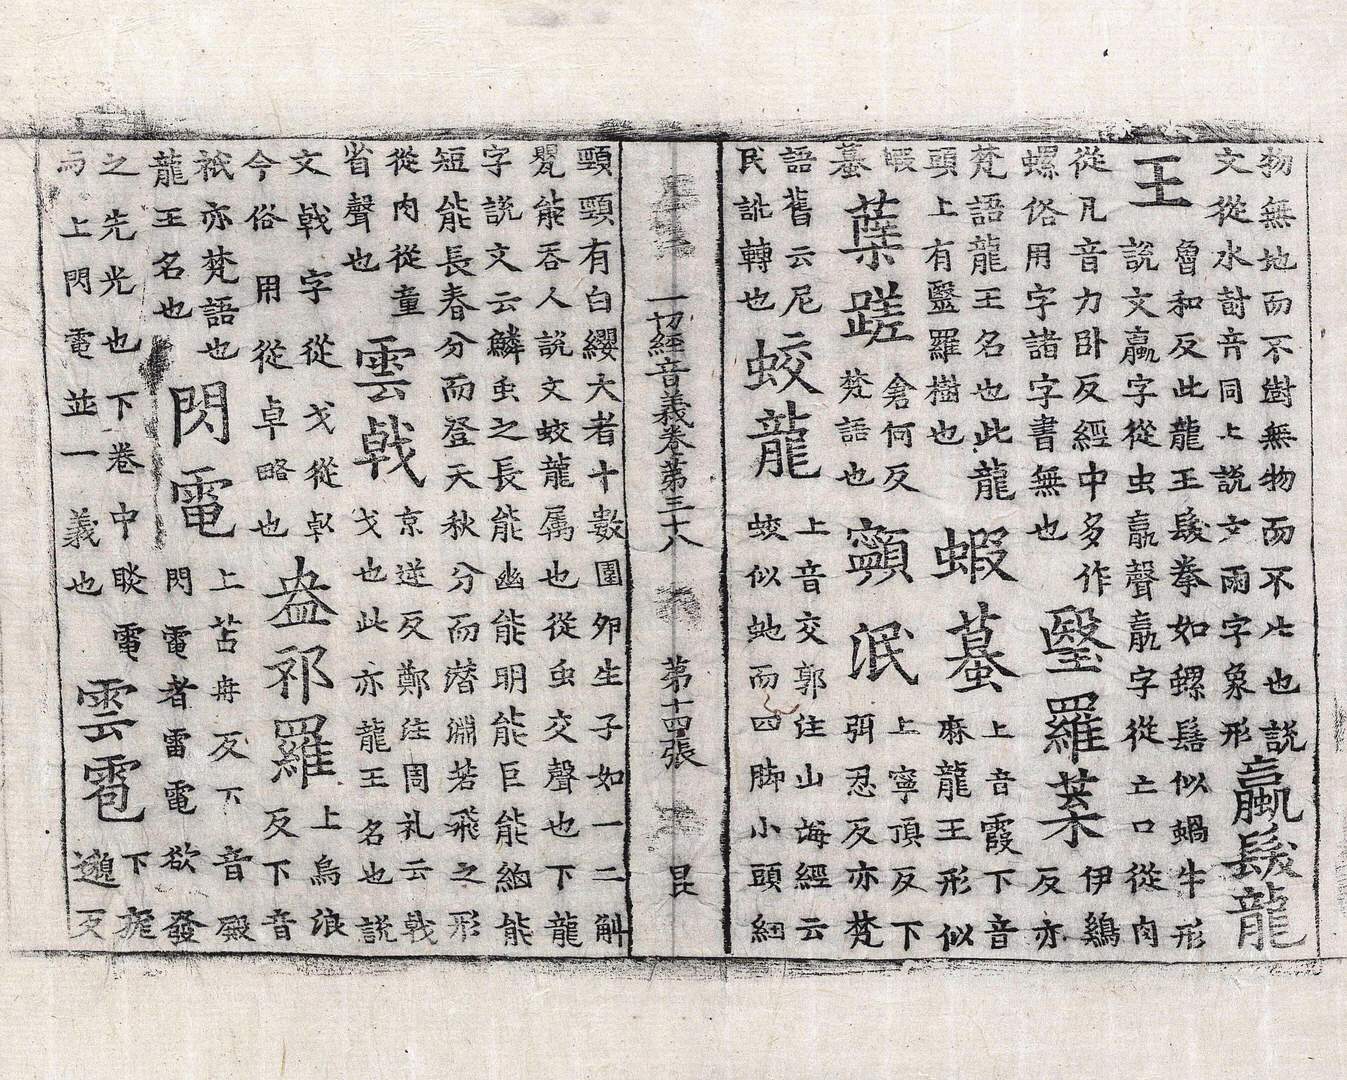 物無地而不樹無物而不生也說
文從水討音同上說文雨字象形
蠃髮龍
王
魯和反此龍王髮拳如螺髻似蝸牛形
說文蠃字從虫𦝠聲𦝠字從亡口從肉
從凡音力卧反經中多作
螺俗用字諸字書無也
瑿羅葉
伊鷄
反亦
梵語龍王名也此龍
頭上有瑿羅樹也
蝦蟇
上音霞下音
麻龍王形似
蝦
蟇
蕯蹉
倉何反
梵語也
泯
上寧頂反下
弭忍反亦梵
語舊云尼
民訛轉也
蛟龍
上音交郭注山海經云
蛟似虵而四脚小頭細
一切經音義卷第三十八 第十四張 昆
頸頸有白纓大者十數圍卵生子如一二斛
甕能吞人說文蛟龍属也從虫交聲也下龍
字說文云鱗虫之長能幽能明能巨能細能
短能長春分而登天秋分而潜淵若飛之形
從肉從童
省聲也
雲戟
京逆反鄭注周礼云戟
戈也此亦龍王名也說
文戟字從戈從倝
今俗用從卓略也
盎祁羅
上烏浪
反下音
祇亦梵語也
龍王名也
閃電
上苫冉反下音殿
閃電者雷電欲發
之先光也下卷中睒電
而上閃電並一義也
雲雹
下庬
邈反